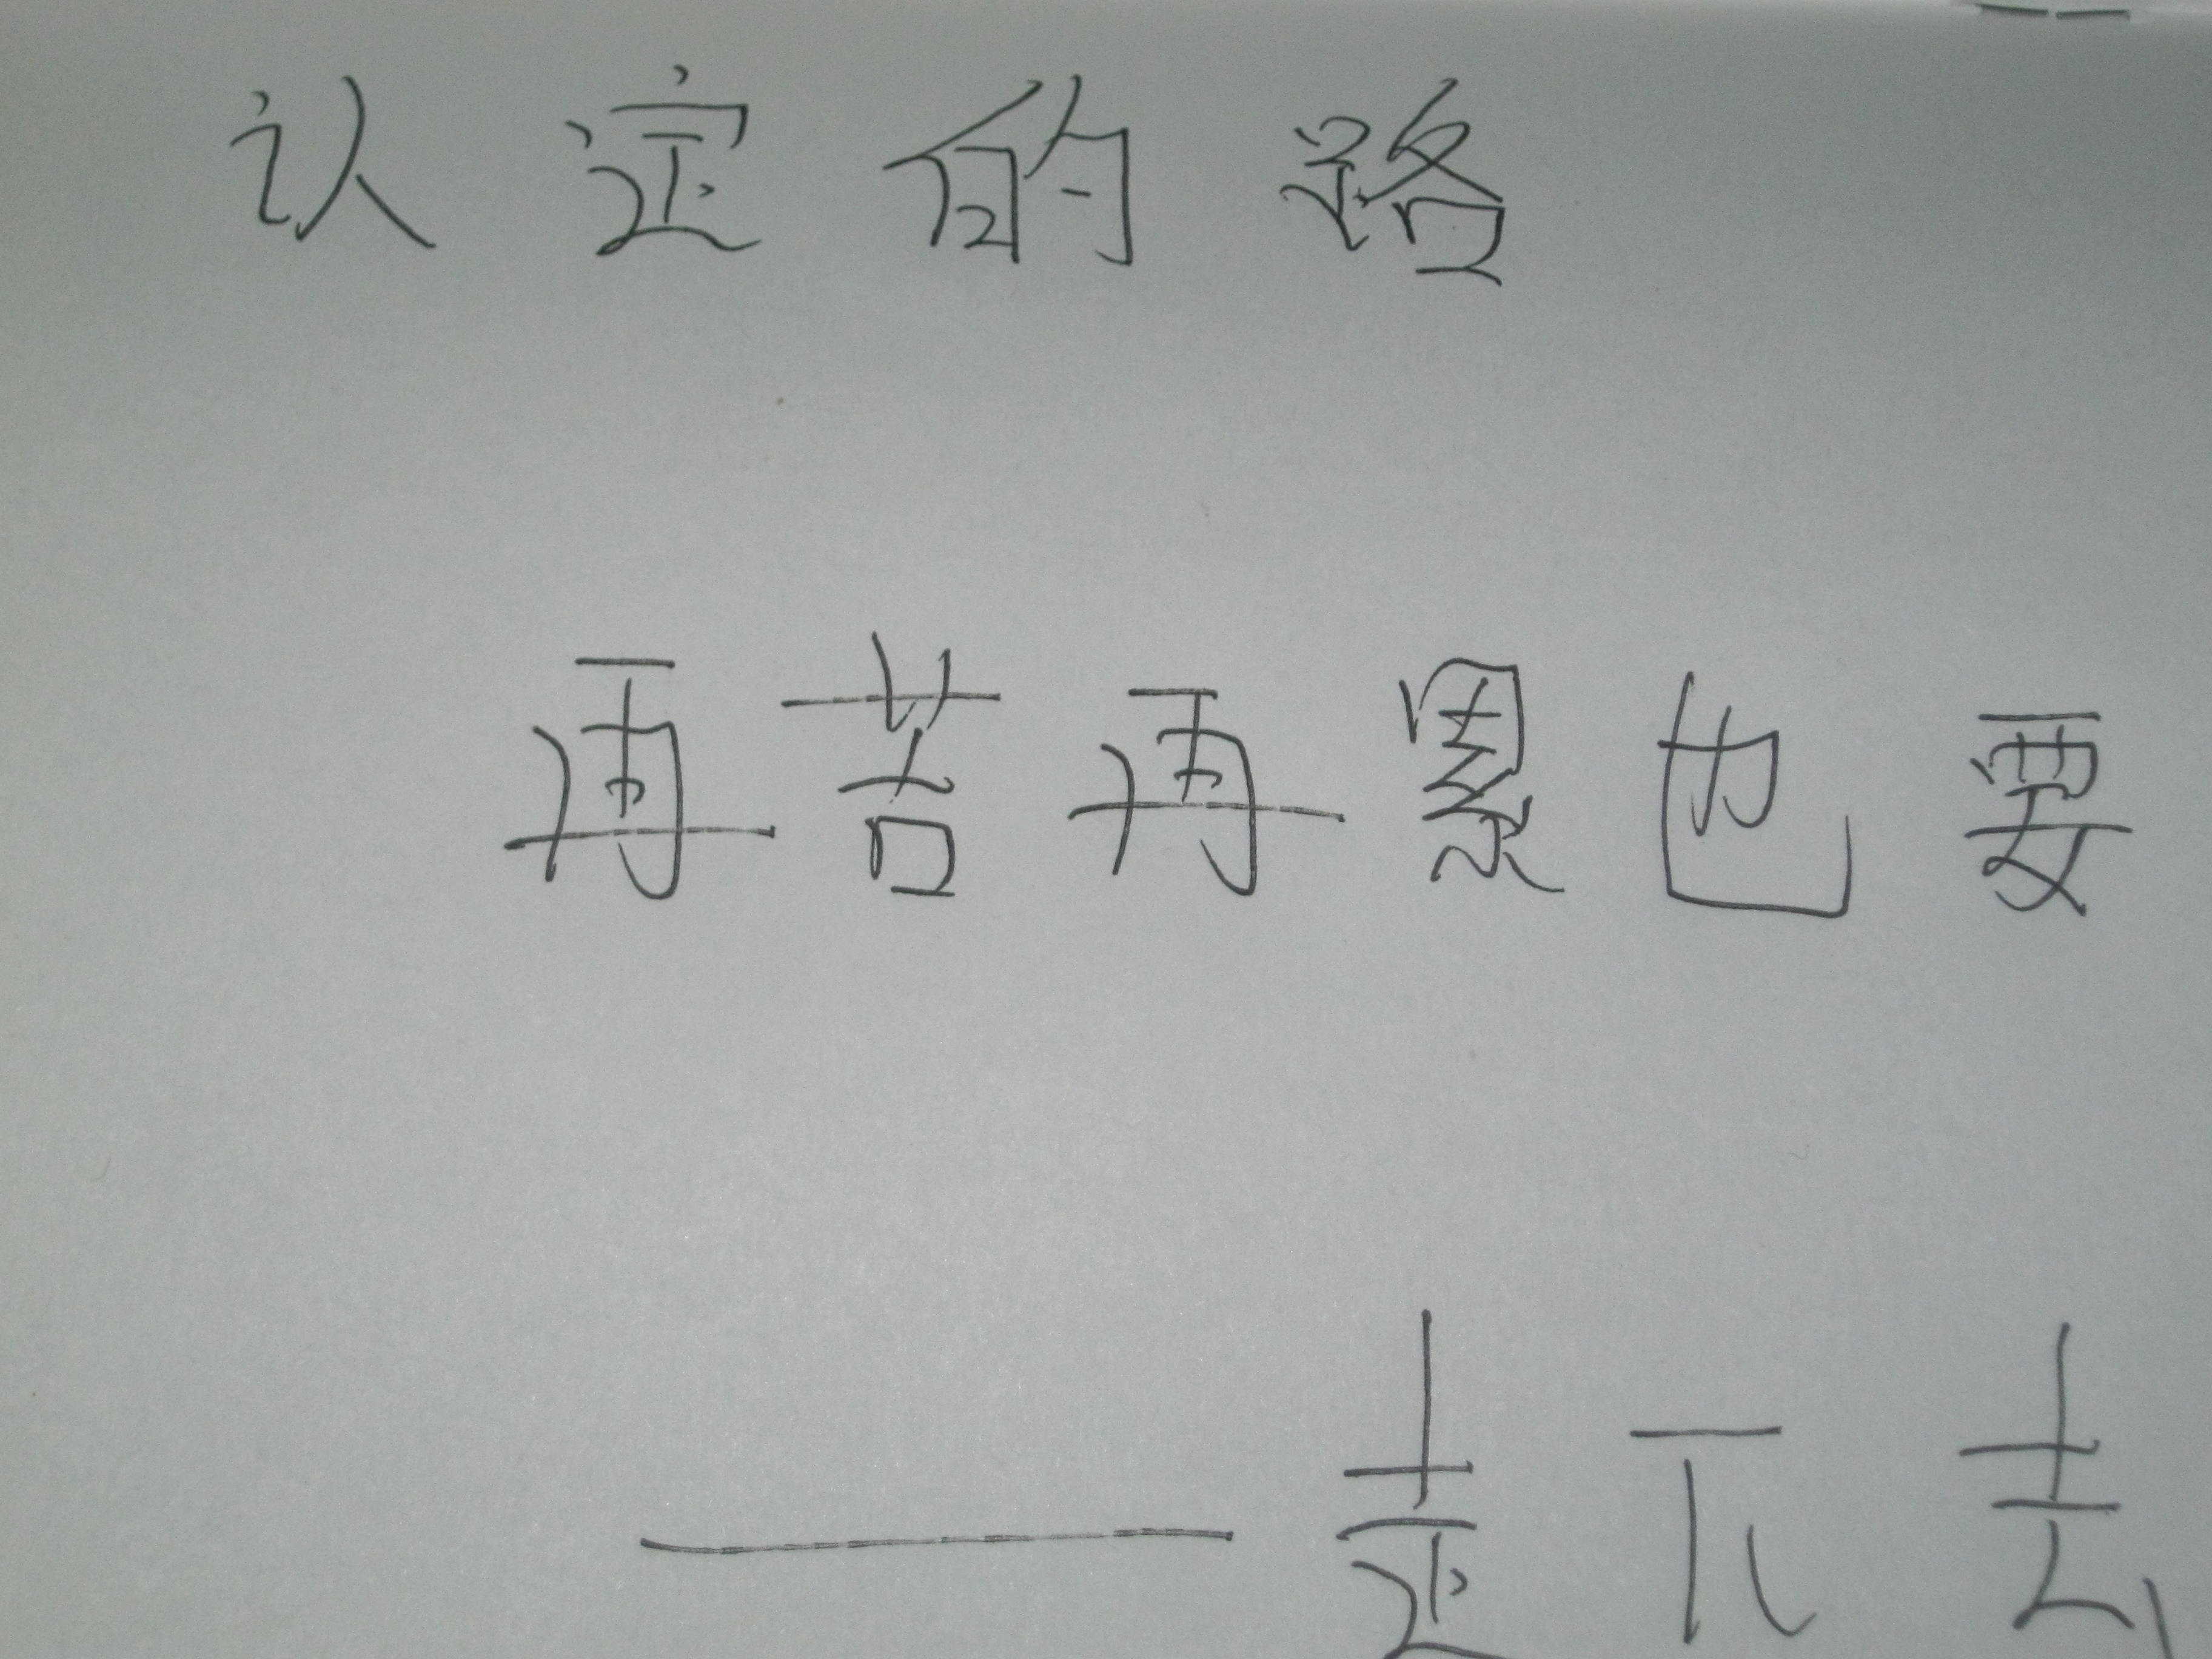 认定的路
再苦再累也要
——走下去